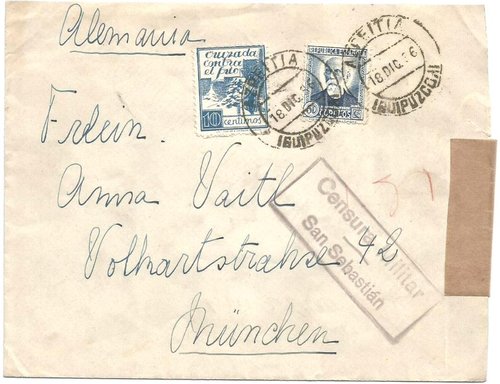 Alemania
cruzada
contra
el frío
10 centimos
REPUBLICA ESPAÑOLA
AZPEITIA
18.DIC.36
(GUIPUZCOA)
AZPEITIA
18.DIC.3
(GUIPUZCOA)
Frlein.
Anna Vaitl
Volkartstrahse 42
München
Censura Militar
San Sebastián